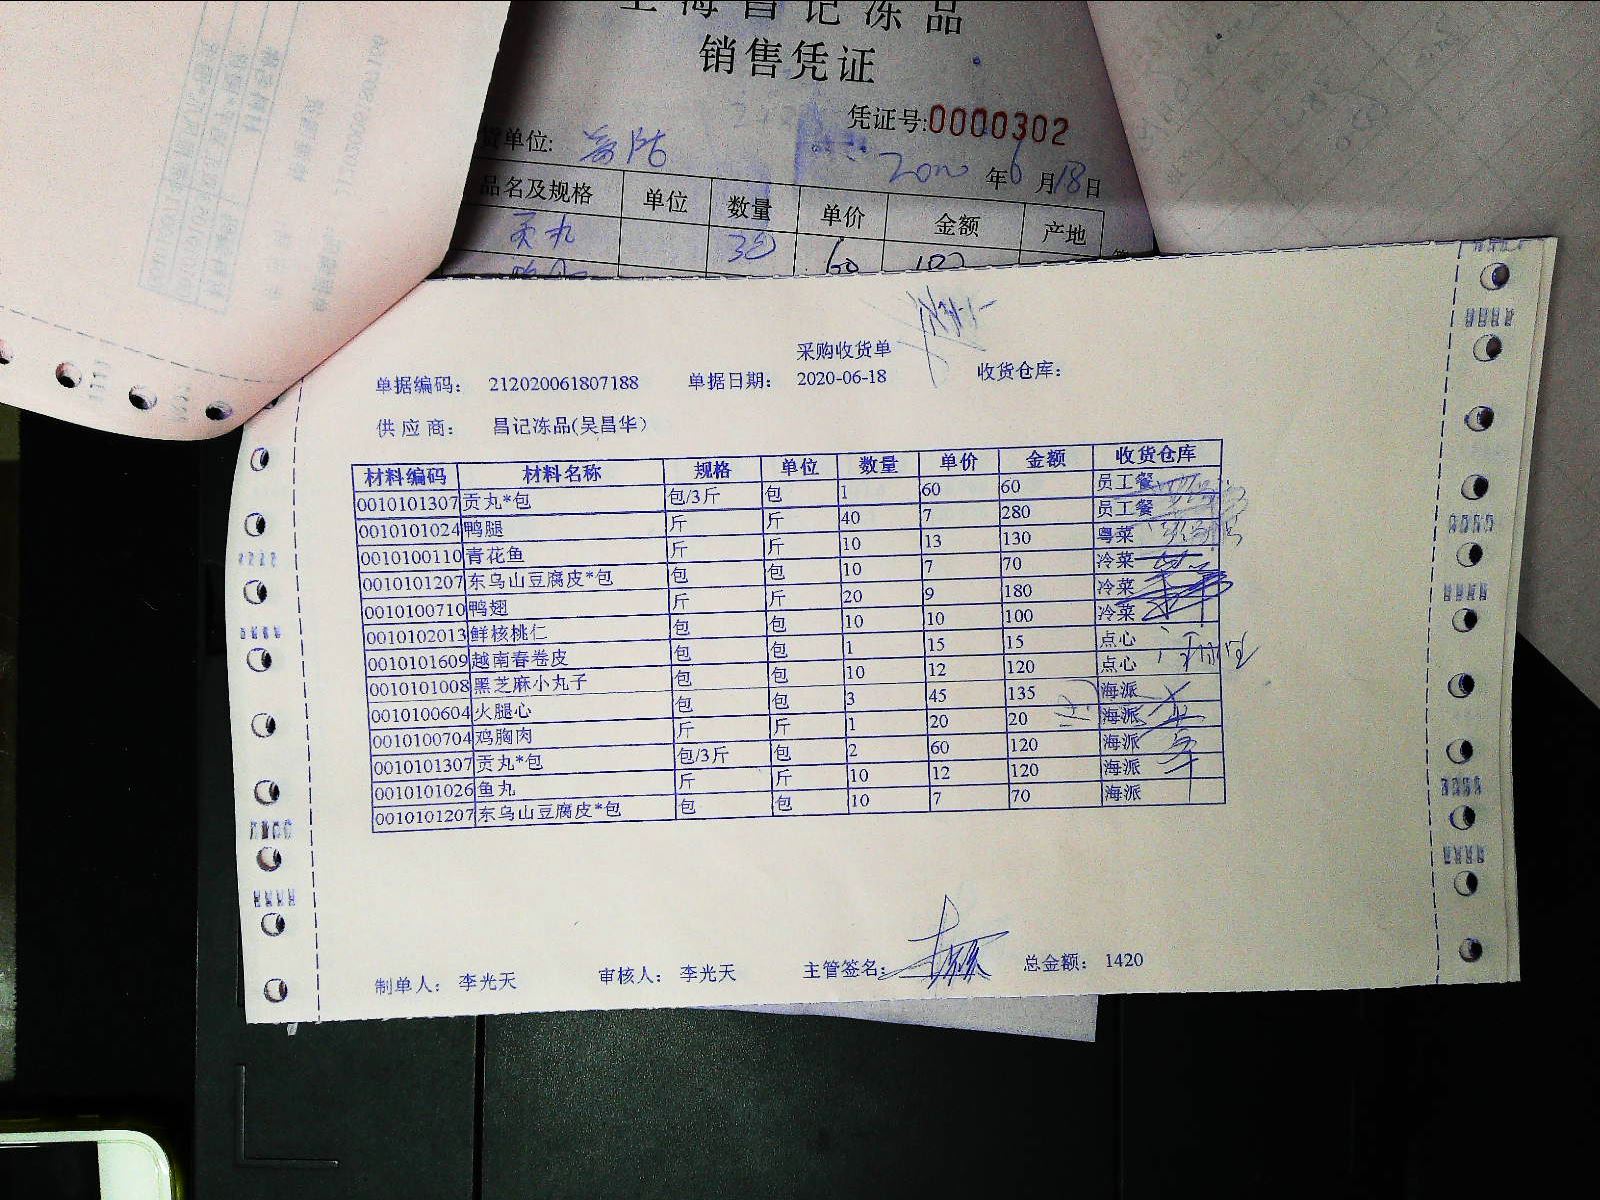 上海昌记冻品
销售凭证
凭证号:0000302
货单位:
2020年6月18日
品名及规格 单位 数量 单价 金额 产地
贡丸 3包 60
采购收货单
单据编码: 212020061807188 单据日期: 2020-06-18 收货仓库:
供应商: 昌记冻品(吴昌华)
材料编码 材料名称 规格 单位 数量 单价 金额 收货仓库
0010101307 贡丸*包 包/3斤 包 1 60 60 员工餐
0010101024 鸭腿 斤 斤 40 7 280 员工餐
0010100110 青花鱼 斤 斤 10 13 130 粤菜
0010101207 东乌山豆腐皮*包 包 包 10 7 70 冷菜
0010100710 鸭翅 斤 斤 20 9 180 冷菜
0010102013 鲜核桃仁 包 包 10 10 100 冷菜
0010101609 越南春卷皮 包 包 1 15 15 点心
0010101008 黑芝麻小丸子 包 包 10 12 120 点心
0010100604 火腿心 包 包 3 45 135 海派
0010100704 鸡胸肉 斤 斤 1 20 20 海派
0010101307 贡丸*包 包/3斤 包 2 60 120 海派
0010101026 鱼丸 斤 斤 10 12 120 海派
0010101207 东乌山豆腐皮*包 包 包 10 7 70 海派
制单人: 李光天 审核人: 李光天 主管签名: 总金额: 1420